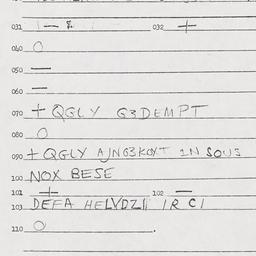 031 1 — 032 +
040 O
050 —
060 —
070 + QGLY G3DEMPT
080 O
090 + QGLY AJNG3KOYT IN SOUS
100 NOX BESE
101 + 102 —
103 DEFA HELVDZII IR CI
110 O .